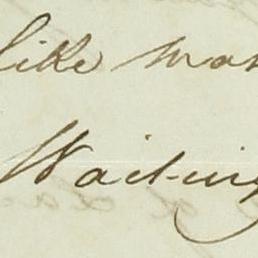 like man
Waiting